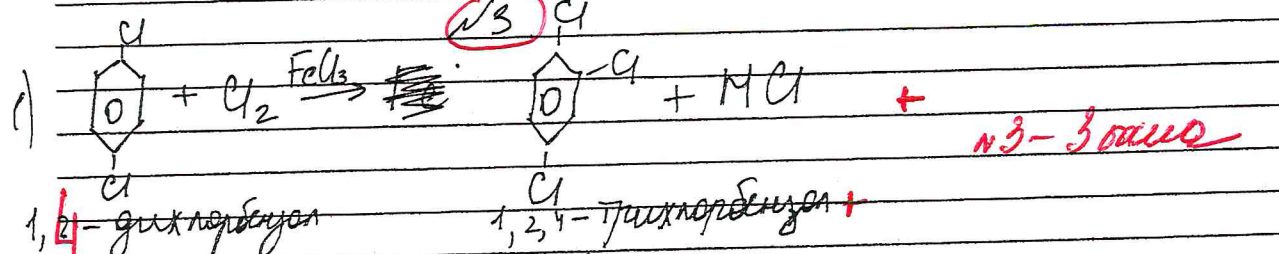 №3
Cl Cl
1) + Cl2 FeCl3 → -Cl + HCl +
№3 - 3 балла
Cl Cl
1, 4 - дихлорбензол 1, 2, 4 - трихлорбензол +